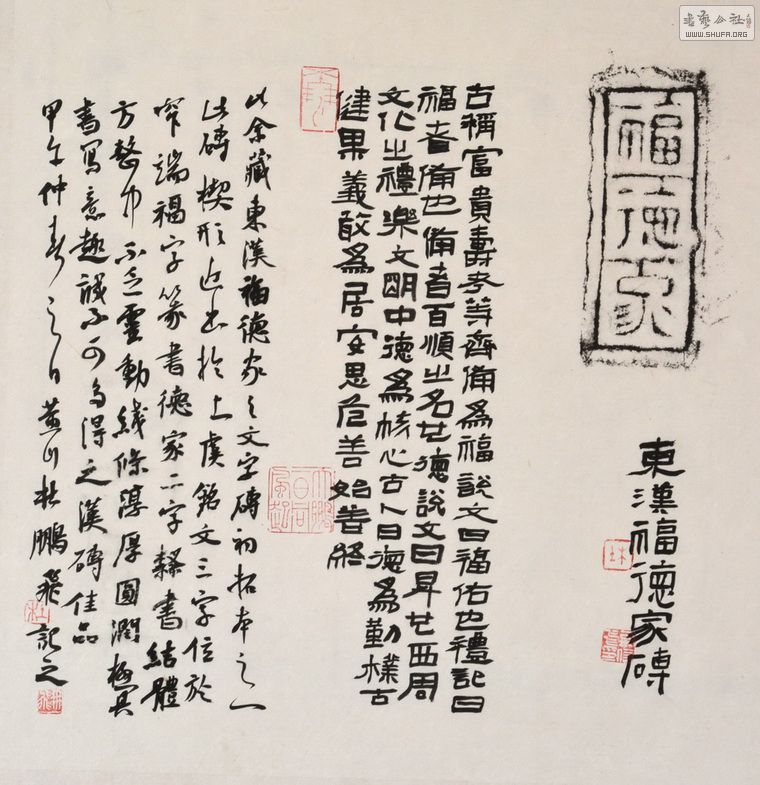 書藝公社
WWW.SHUFA.ORG
福德家
東漢福德家磚
古稱富貴壽考等齊備為福說文曰福佑也禮記曰
福者備也備者百順之名也德說文曰昇也西周
文化之禮樂文明中德為核心古人曰德為勤樸古
健果義敢為居安思危善始善終
此余藏東漢福德家之文字磚初拓本之一
此磚楔形近出於上虞銘文三字位於
窄端福字篆書德家二字隸書結體
方整而不乏靈動綫條渾厚圓潤極具
書寫意趣誠不可多得之漢磚佳品
甲午仲春之日黃山杜鵬飛記之